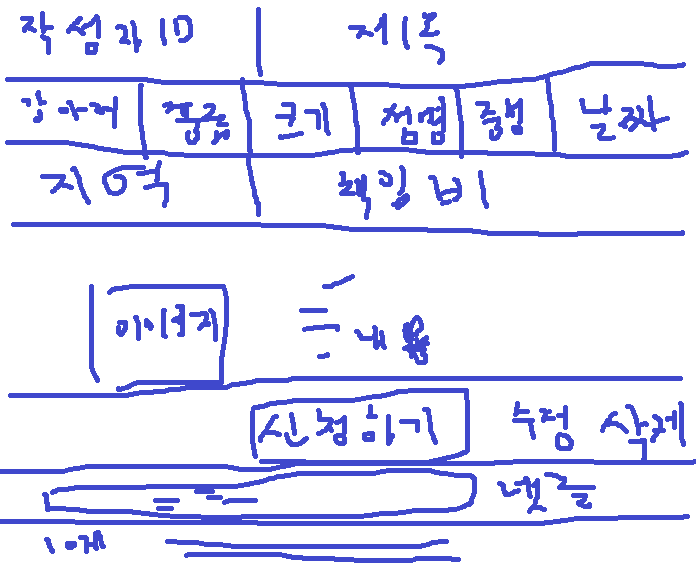 작성자ID 제목
강아지 품종 크기 성별 중성 날짜
지역 책임비
이미지 내용
신청하기 수정 삭제
댓글
10개